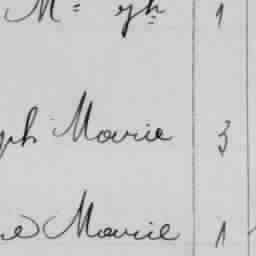 M= gh 1
ph Marie 3
e Marie 1